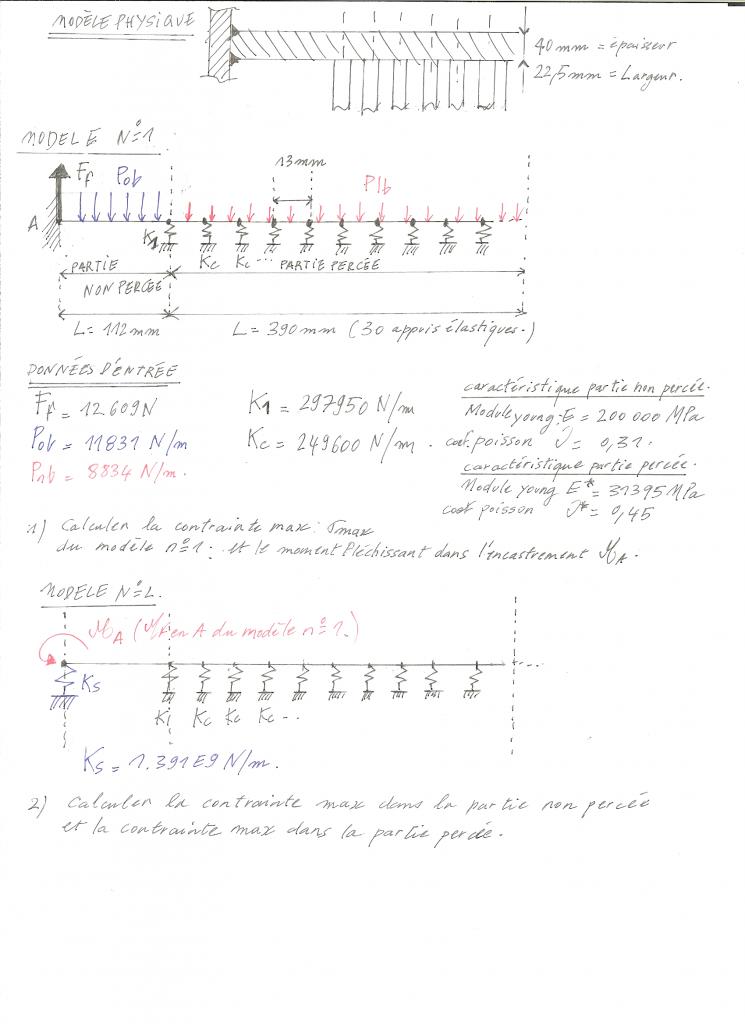 MODÈLE PHYSIQUE
40 mm = épaisseur
22,5mm = Largeur.
MODELE N°1
13mm
Ff
Pob
Plb
A
K1
Kc
Kc ...
PARTIE
NON PERCÉE
PARTIE PERCÉE
L= 112mm
L= 390mm (30 appuis élastiques.)
DONNÉES D'ENTRÉE
Ff = 12609N
Pob = 11831 N/m
Pnb = 8834 N/m.
K1 = 297950 N/m
Kc = 249600 N/m.
caractéristique partie non percée.
Module young: E = 200 000 MPa
coef. poisson ν = 0,31.
caractéristique partie percée.
Module young E* = 31395 MPa
coef poisson ν* = 0,45
1) Calculer la contrainte max: σmax
du modèle n°1: et le moment fléchissant dans l'encastrement MA.
MODELE N°2.
MA (Mf en A du modèle n°1.)
Ks
K1 Kc Kc Kc ...
Ks = 1.391E9 N/m.
2) Calculer la contrainte max dans la partie non percée
et la contrainte max dans la partie percée.